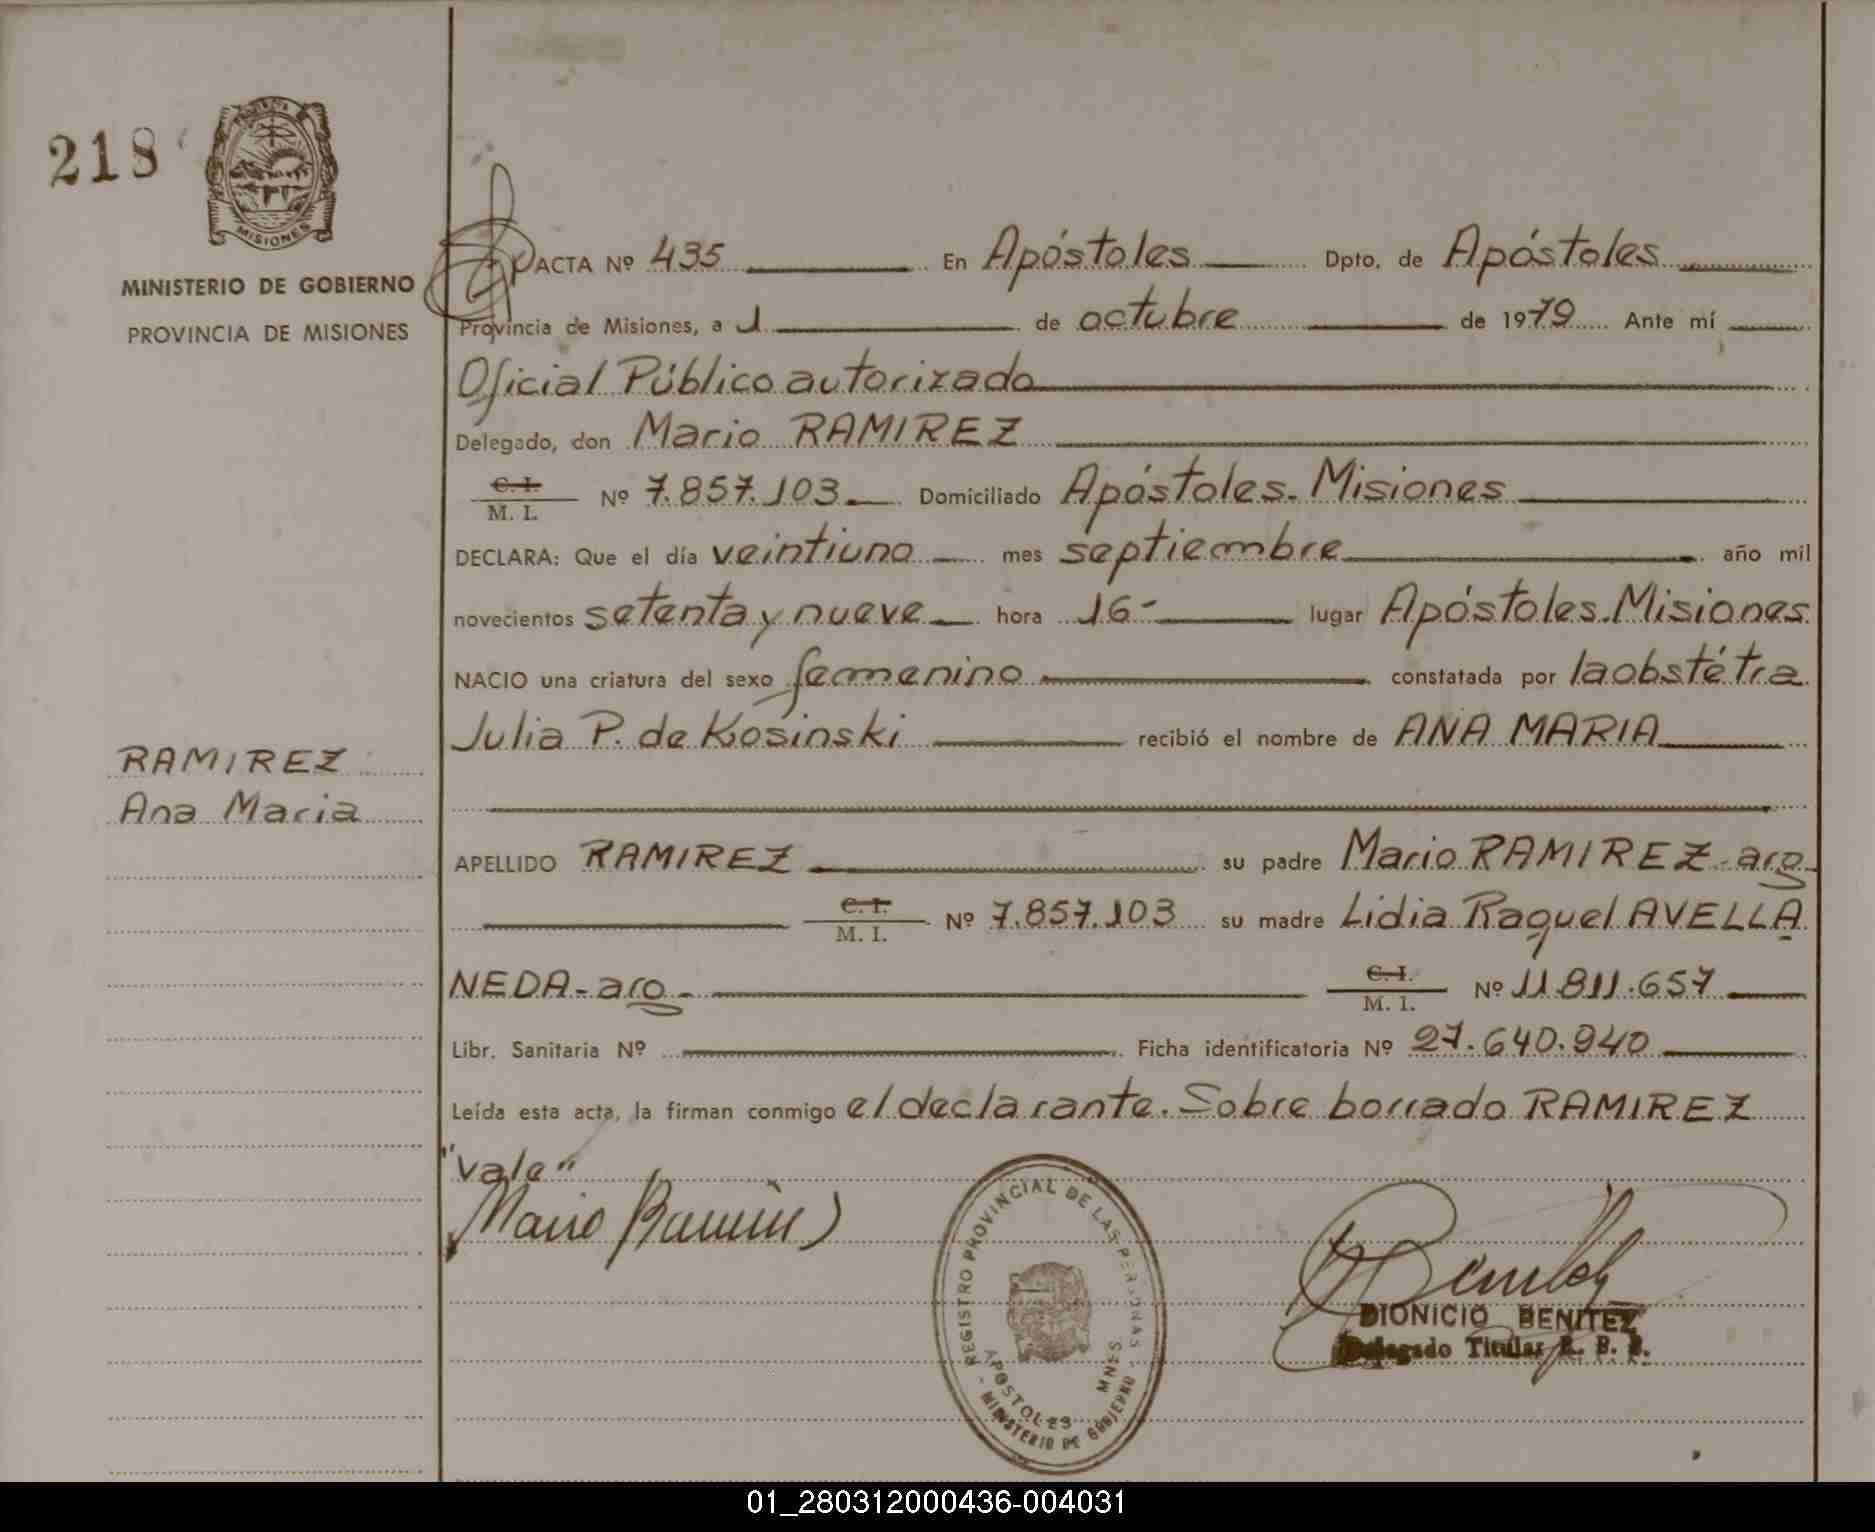 218
MISIONES
MINISTERIO DE GOBIERNO
PROVINCIA DE MISIONES
ACTA Nº 435 En Apóstoles Dpto. de Apóstoles
Provincia de Misiones, a 1 de octubre de 1979 Ante mí
Oficial Público autorizado
Delegado, don Mario RAMIREZ
C. I.
M. I. Nº 7.857.103 Domiciliado Apóstoles. Misiones
DECLARA: Que el día veintiuno mes septiembre año mil
novecientos setenta y nueve hora 16- lugar Apóstoles. Misiones
NACIO una criatura del sexo femenino constatada por la obstétra
Julia P. de Kosinski recibió el nombre de ANA MARIA
RAMIREZ
Ana Maria
APELLIDO RAMIREZ su padre Mario RAMIREZ - arg.
C. I.
M. I. Nº 7.857.103 su madre Lidia Raquel AVELLA
NEDA - arg - C. I.
M. I. Nº 11.811.657
Libr. Sanitaria Nº Ficha identificatoria Nº 27.640.940
Leída esta acta, la firman conmigo el declarante. Sobre borrado RAMIREZ
"vale"
Mario Ramirez
REGISTRO PROVINCIAL DE LAS PERSONAS
APOSTOLES MNES
- MINISTERIO DE GOBIERNO -
DIONICIO BENITEZ
Delegado Titular
01_280312000436-004031